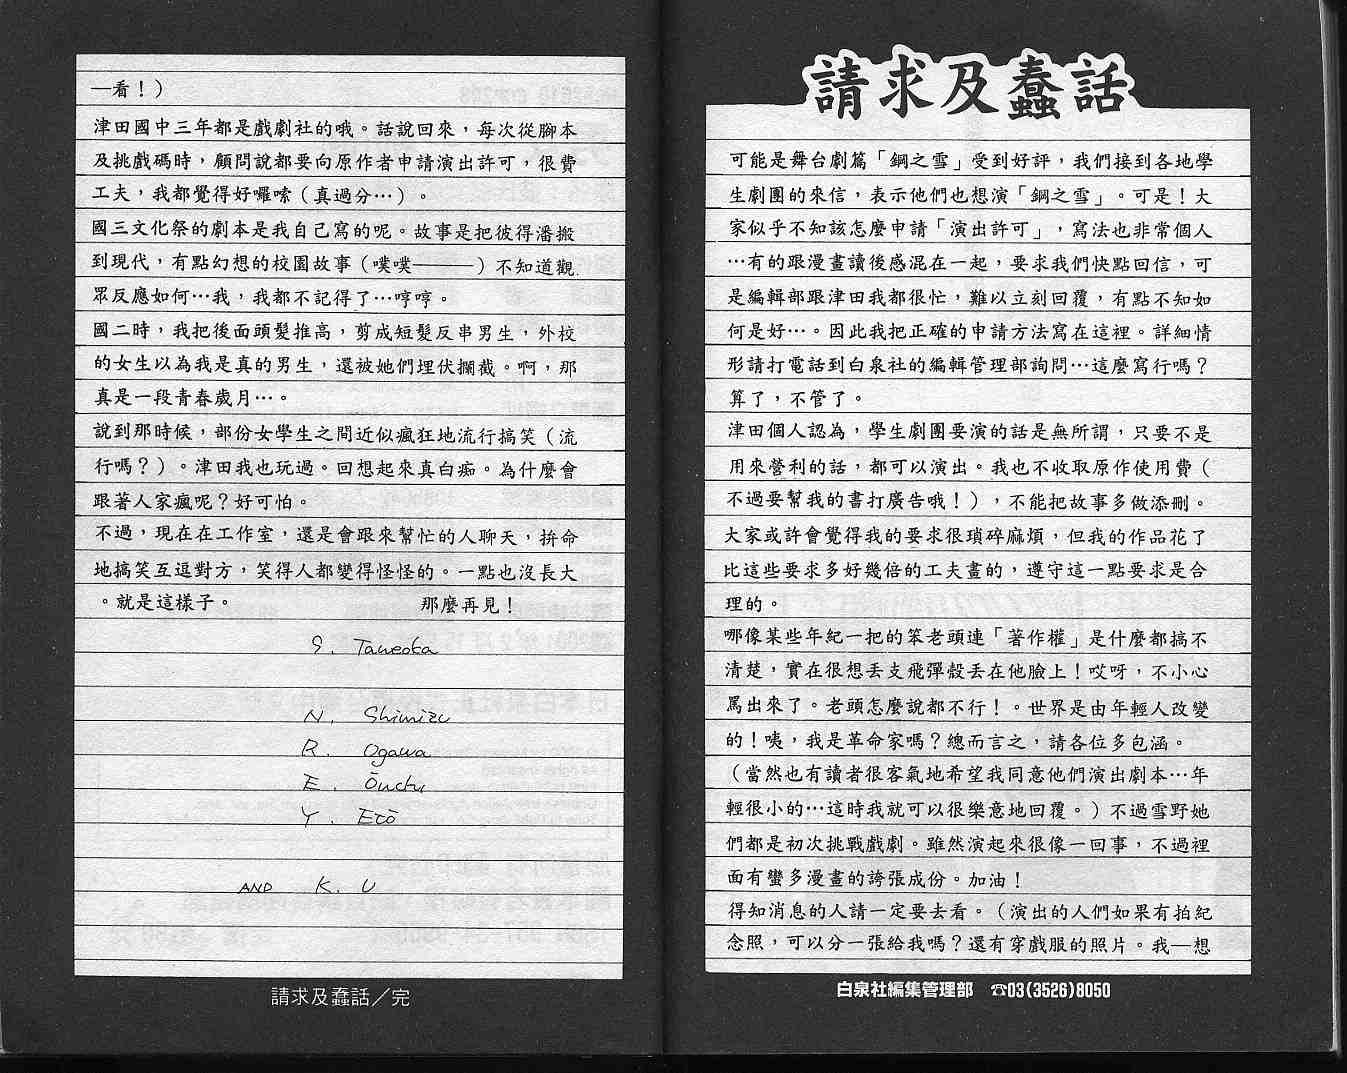 請求及蠢話
可能是舞台劇篇「鋼之雪」受到好評，我們接到各地學
生劇團的來信，表示他們也想演「鋼之雪」。可是！大
家似乎不知該怎麼申請「演出許可」，寫法也非常個人
…有的跟漫畫讀後感混在一起，要求我們快點回信，可
是編輯部跟津田我都很忙，難以立刻回覆，有點不知如
何是好…。因此我把正確的申請方法寫在這裡。詳細情
形請打電話到白泉社的編輯管理部詢問…這麼寫行嗎？
算了，不管了。
津田個人認為，學生劇團要演的話是無所謂，只要不是
用來營利的話，都可以演出。我也不收取原作使用費（
不過要幫我的書打廣告哦！），不能把故事多做添刪。
大家或許會覺得我的要求很瑣碎麻煩，但我的作品花了
比這些要求多好幾倍的工夫畫的，遵守這一點要求是合
理的。
哪像某些年紀一把的笨老頭連「著作權」是什麼都搞不
清楚，實在很想丢支飛彈殼丢在他臉上！哎呀，不小心
罵出來了。老頭怎麼說都不行！。世界是由年輕人改變
的！咦，我是革命家嗎？總而言之，請各位多包涵。
（當然也有讀者很客氣地希望我同意他們演出劇本…年
輕很小的…這時我就可以很樂意地回覆。）不過雪野她
們都是初次挑戰戲劇。雖然演起來很像一回事，不過裡
面有蠻多漫畫的誇張成份。加油！
得知消息的人請一定要去看。（演出的人們如果有拍紀
念照，可以分一張給我嗎？還有穿戲服的照片。我—想
白泉社編集管理部　☎03(3526)8050
—看！）
津田國中三年都是戲劇社的哦。話說回來，每次從腳本
及挑戲碼時，顧問說都要向原作者申請演出許可，很費
工夫，我都覺得好囉嗦（真過分…）。
國三文化祭的劇本是我自己寫的呢。故事是把彼得潘搬
到現代，有點幻想的校園故事（噗噗———）不知道觀
眾反應如何…我，我都不記得了…哼哼。
國二時，我把後面頭髮推高，剪成短髮反串男生，外校
的女生以為我是真的男生，還被她們埋伏攔截。啊，那
真是一段青春歲月…。
說到那時候，部份女學生之間近似瘋狂地流行搞笑（流
行嗎？）。津田我也玩過。回想起來真白痴。為什麼會
跟著人家瘋呢？好可怕。
不過，現在在工作室，還是會跟來幫忙的人聊天，拚命
地搞笑互逗對方，笑得人都變得怪怪的。一點也沒長大
。就是這樣子。　　　　　　　　　那麼再見！
S. Taneoka
N. Shimizu
R. Ogawa
E. Ōuchi
Y. Etō
AND K. U
請求及蠢話／完